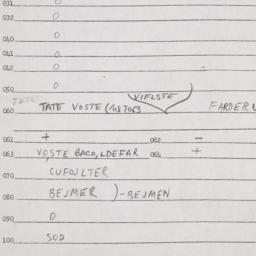 031 0
032 0
040 0
041 0
042 0
050 0
VIFLSTE
TATE
060 TATE VOSTE FARDER
061 + 062 -
063 VOSTE BACO, LDEFAR 064 +
070 CUFOSLTER
080 BEJMER )-BEJMEN
090 0
100 SOD